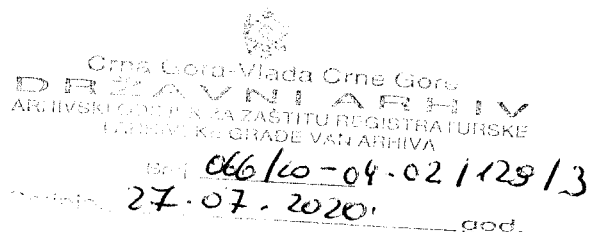 Crna Gora-Vlada Crne Gore
DRŽAVNI ARHIV
ARHIVSKI ODSJEK ZA ZAŠTITU REGISTRATURSKE
I ARHIVSKE GRAĐE VAN ARHIVA
Broj 066/20-04-02/129/3
27.07.2020. god.